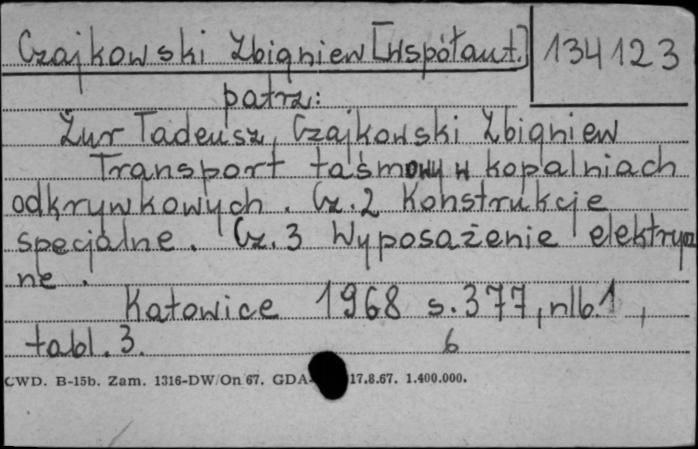 Czajkowski Zbigniew [Współaut.] 134123
patrz:
Żur Tadeusz, Czajkowski Zbigniew
Transport taśmowy w kopalniach
odkrywkowych. Cz.2 Konstrukcje
specjalne. Cz.3 Wyposażenie elektrycz
ne.
Katowice 1968 s.377, nlb.1,
tabl.3.
6
CWD. B-15b. Zam. 1316-DW/On 67. GDA- 17.8.67. 1.400.000.